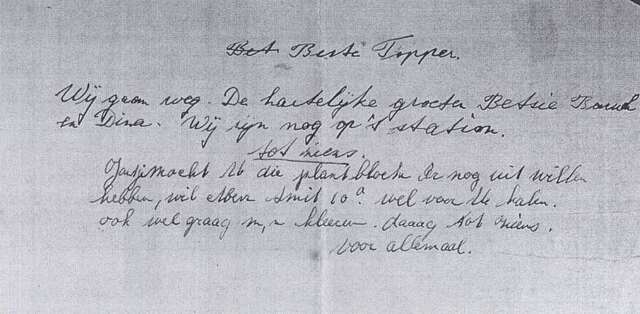 Bet Beste Topper.
Wij gaan weg. De hartelijke groeten Betsie Baruch
en Dina. Wij zijn nog op 's station.
tot niens.
mocht U die plantbloeken er nog uit willen
hebben, wil Smit 10ᵃ wel voor U halen.
ook wel graag m,n kleeren. daaag tot niens.
voor allemaal.